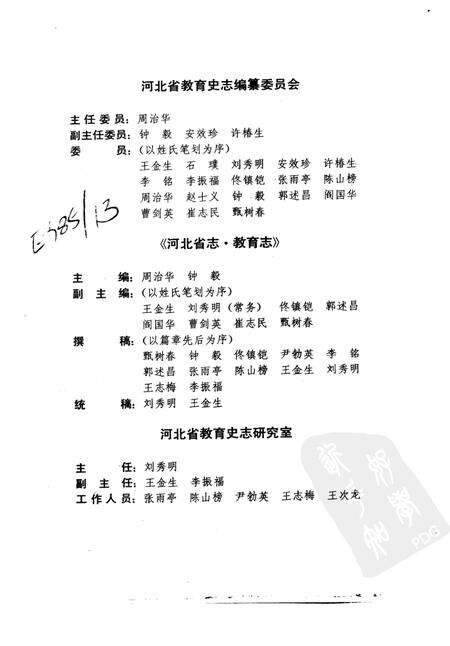 河北省教育史志编纂委员会
主任委员：周治华
副主任委员：钟 毅 安效珍 许椿生
委 员：（以姓氏笔划为序）
王金生 石 璞 刘秀明 安效珍 许椿生
李 铭 李振福 佟镇铠 张雨亭 陈山榜
周治华 赵士义 钟 毅 郭述昌 阎国华
曹剑英 崔志民 甄树春
E385/13
《河北省志·教育志》
主 编：周治华 钟 毅
副 主 编：（以姓氏笔划为序）
王金生 刘秀明（常务） 佟镇铠 郭述昌
阎国华 曹剑英 崔志民 甄树春
撰 稿：（以篇章先后为序）
甄树春 钟 毅 佟镇铠 尹勃英 李 铭
郭述昌 张雨亭 陈山榜 王金生 刘秀明
王志梅 李振福
统 稿：刘秀明 王金生
河北省教育史志研究室
主 任：刘秀明
副 主 任：王金生 李振福
工作人员：张雨亭 陈山榜 尹勃英 王志梅 王次龙
PDG